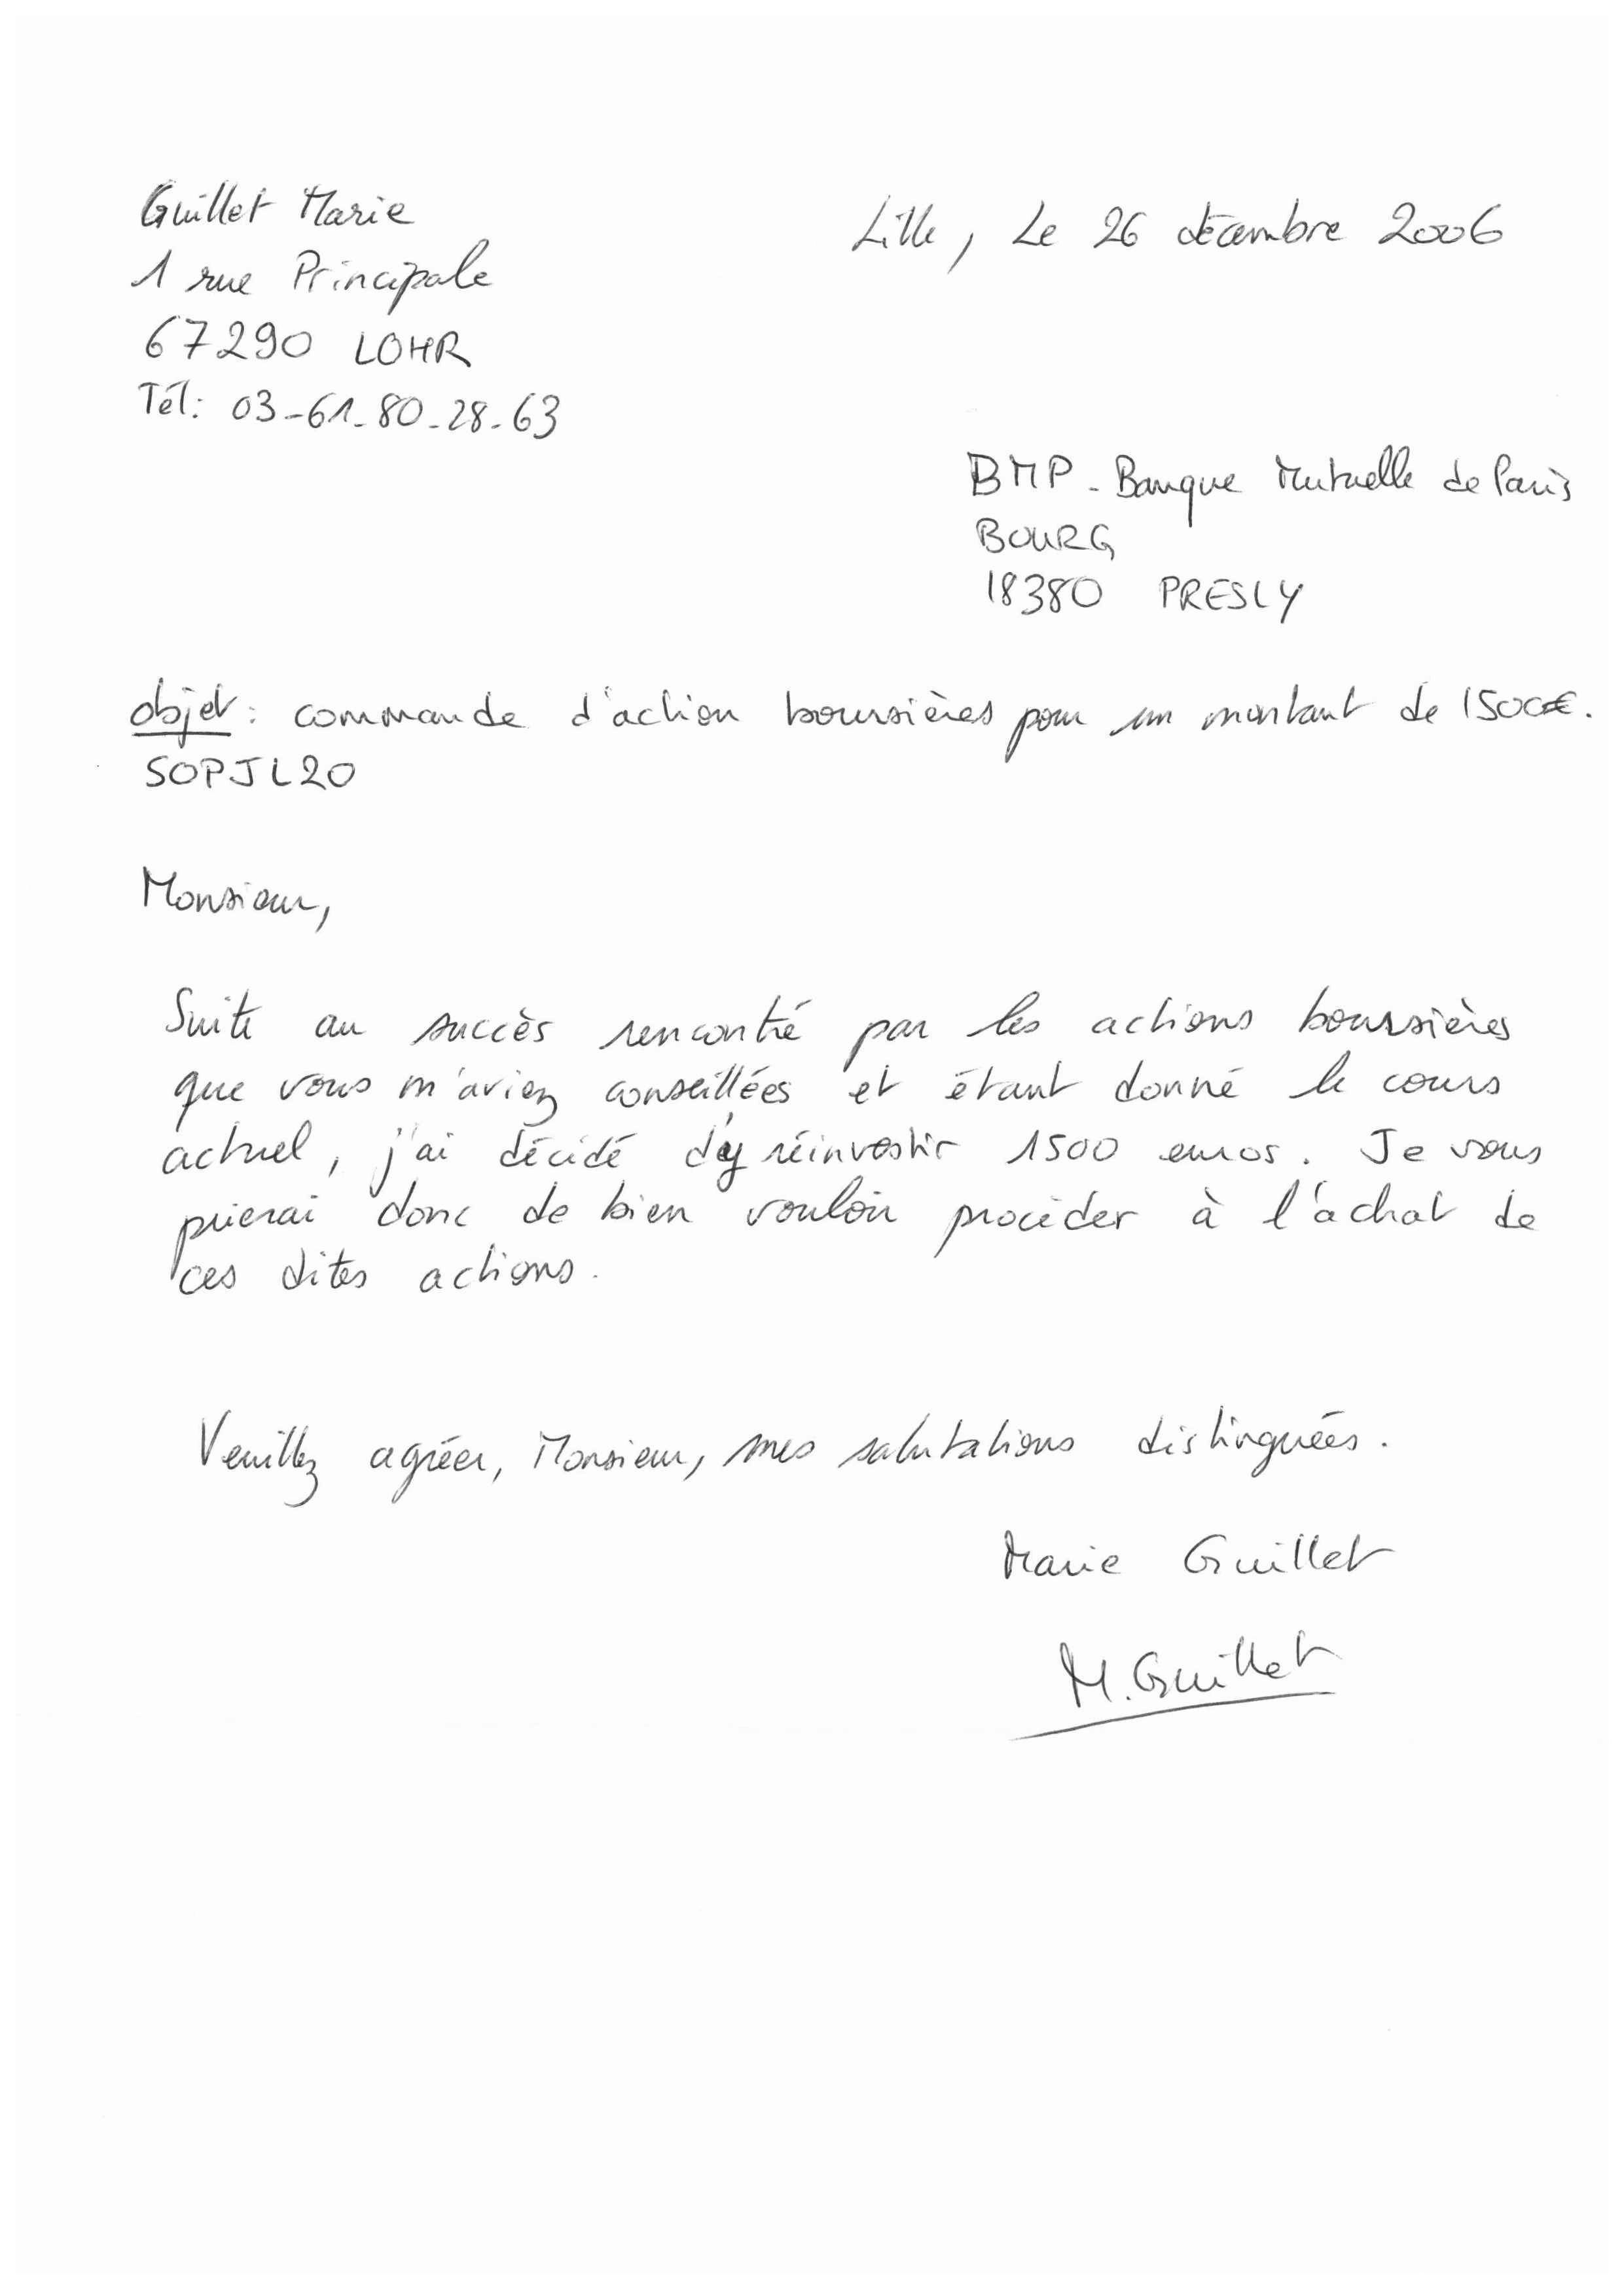 Guillet Marie
1 rue Principale
67290 LOHR
Tél: 03-61-80-28-63
Lille, Le 26 décembre 2006
BMP - Banque Mutuelle de Paris
BOURG
18380 PRESLY
objet: commande d'action boursières pour un montant de 1500€.
SOPJL20
Monsieur,
Suite au succès rencontré par les actions boursières
que vous m'aviez conseillées et étant donné le cours
actuel, j'ai décidé d'y réinvestir 1500 euros. Je vous
prierai donc de bien vouloir procéder à l'achat de
ces dites actions.
Veuillez agréer, Monsieur, mes salutations distinguées.
Marie Guillet
M. Guillet